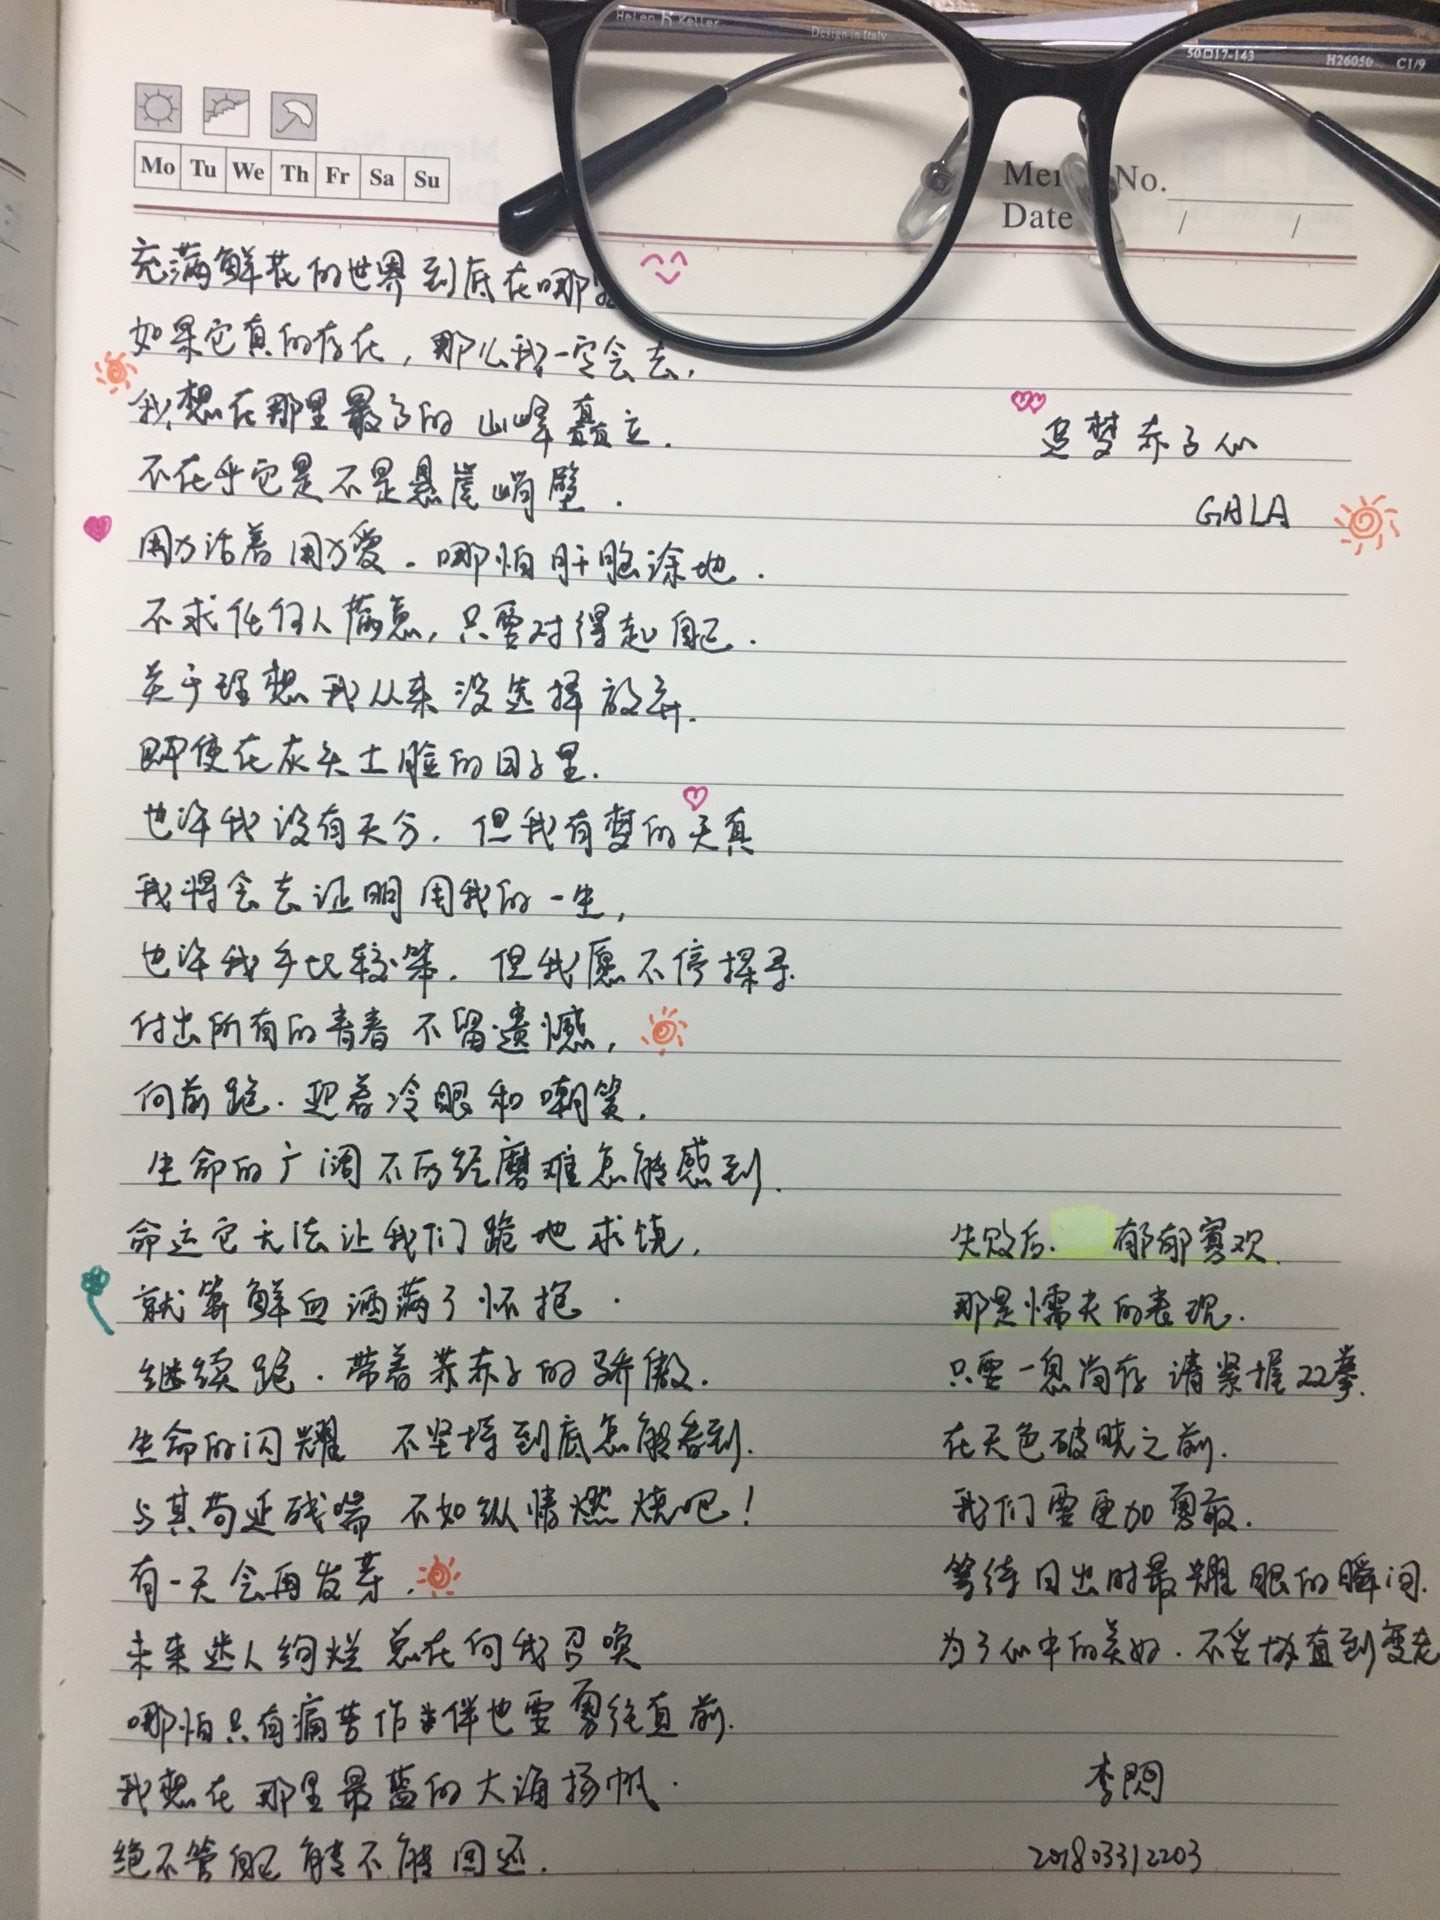 Helen Keller
Design in Italy
50口17-143
H26050 C1/9
Mo Tu We Th Fr Sa Su
No.
Date / /
充满鲜花的世界到底在哪
如果它真的存在，那么我一定会去，
我想在那里最高的山峰矗立.
不在乎它是不是悬崖峭壁.
用力活着用力爱.哪怕肝脑涂地.
不求任何人满意，只要对得起自己.
关于理想我从来没选择放弃.
即使在灰头土脸的日子里.
也许我没有天分.但我有梦的天真
我将会去证明用我的一生，
也许我手比较笨.但我愿不停探寻.
付出所有的青春不留遗憾，
向前跑.迎着冷眼和嘲笑.
生命的广阔不历经磨难怎能感到.
命运它无法让我们跪地求饶，
就算鲜血洒满了怀抱.
继续跑.带着赤子的骄傲.
生命的闪耀 不坚持到底怎能看到.
与其苟延残喘 不如纵情燃烧吧！
有一天会再发芽.
未来迷人绚烂总在向我召唤
哪怕只有痛苦作伴也要勇往直前.
我想在那里最蓝的大海扬帆.
绝不管自己能不能回还.
追梦赤子心
GALA
失败后. 郁郁寡欢.
那是懦夫的表现.
只要一息尚存 请紧握双拳.
在天色破晓之前.
我们要更加勇敢.
等待日出时最耀眼的瞬间.
为了心中的美好.不妥协直到变老
201803312203